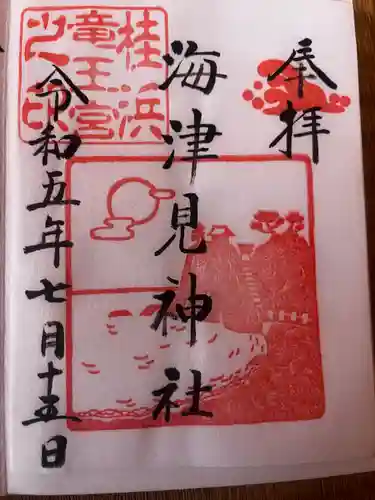 奉拝
海津見神社
桂浜
竜王宮
之印
令和五年七月十五日